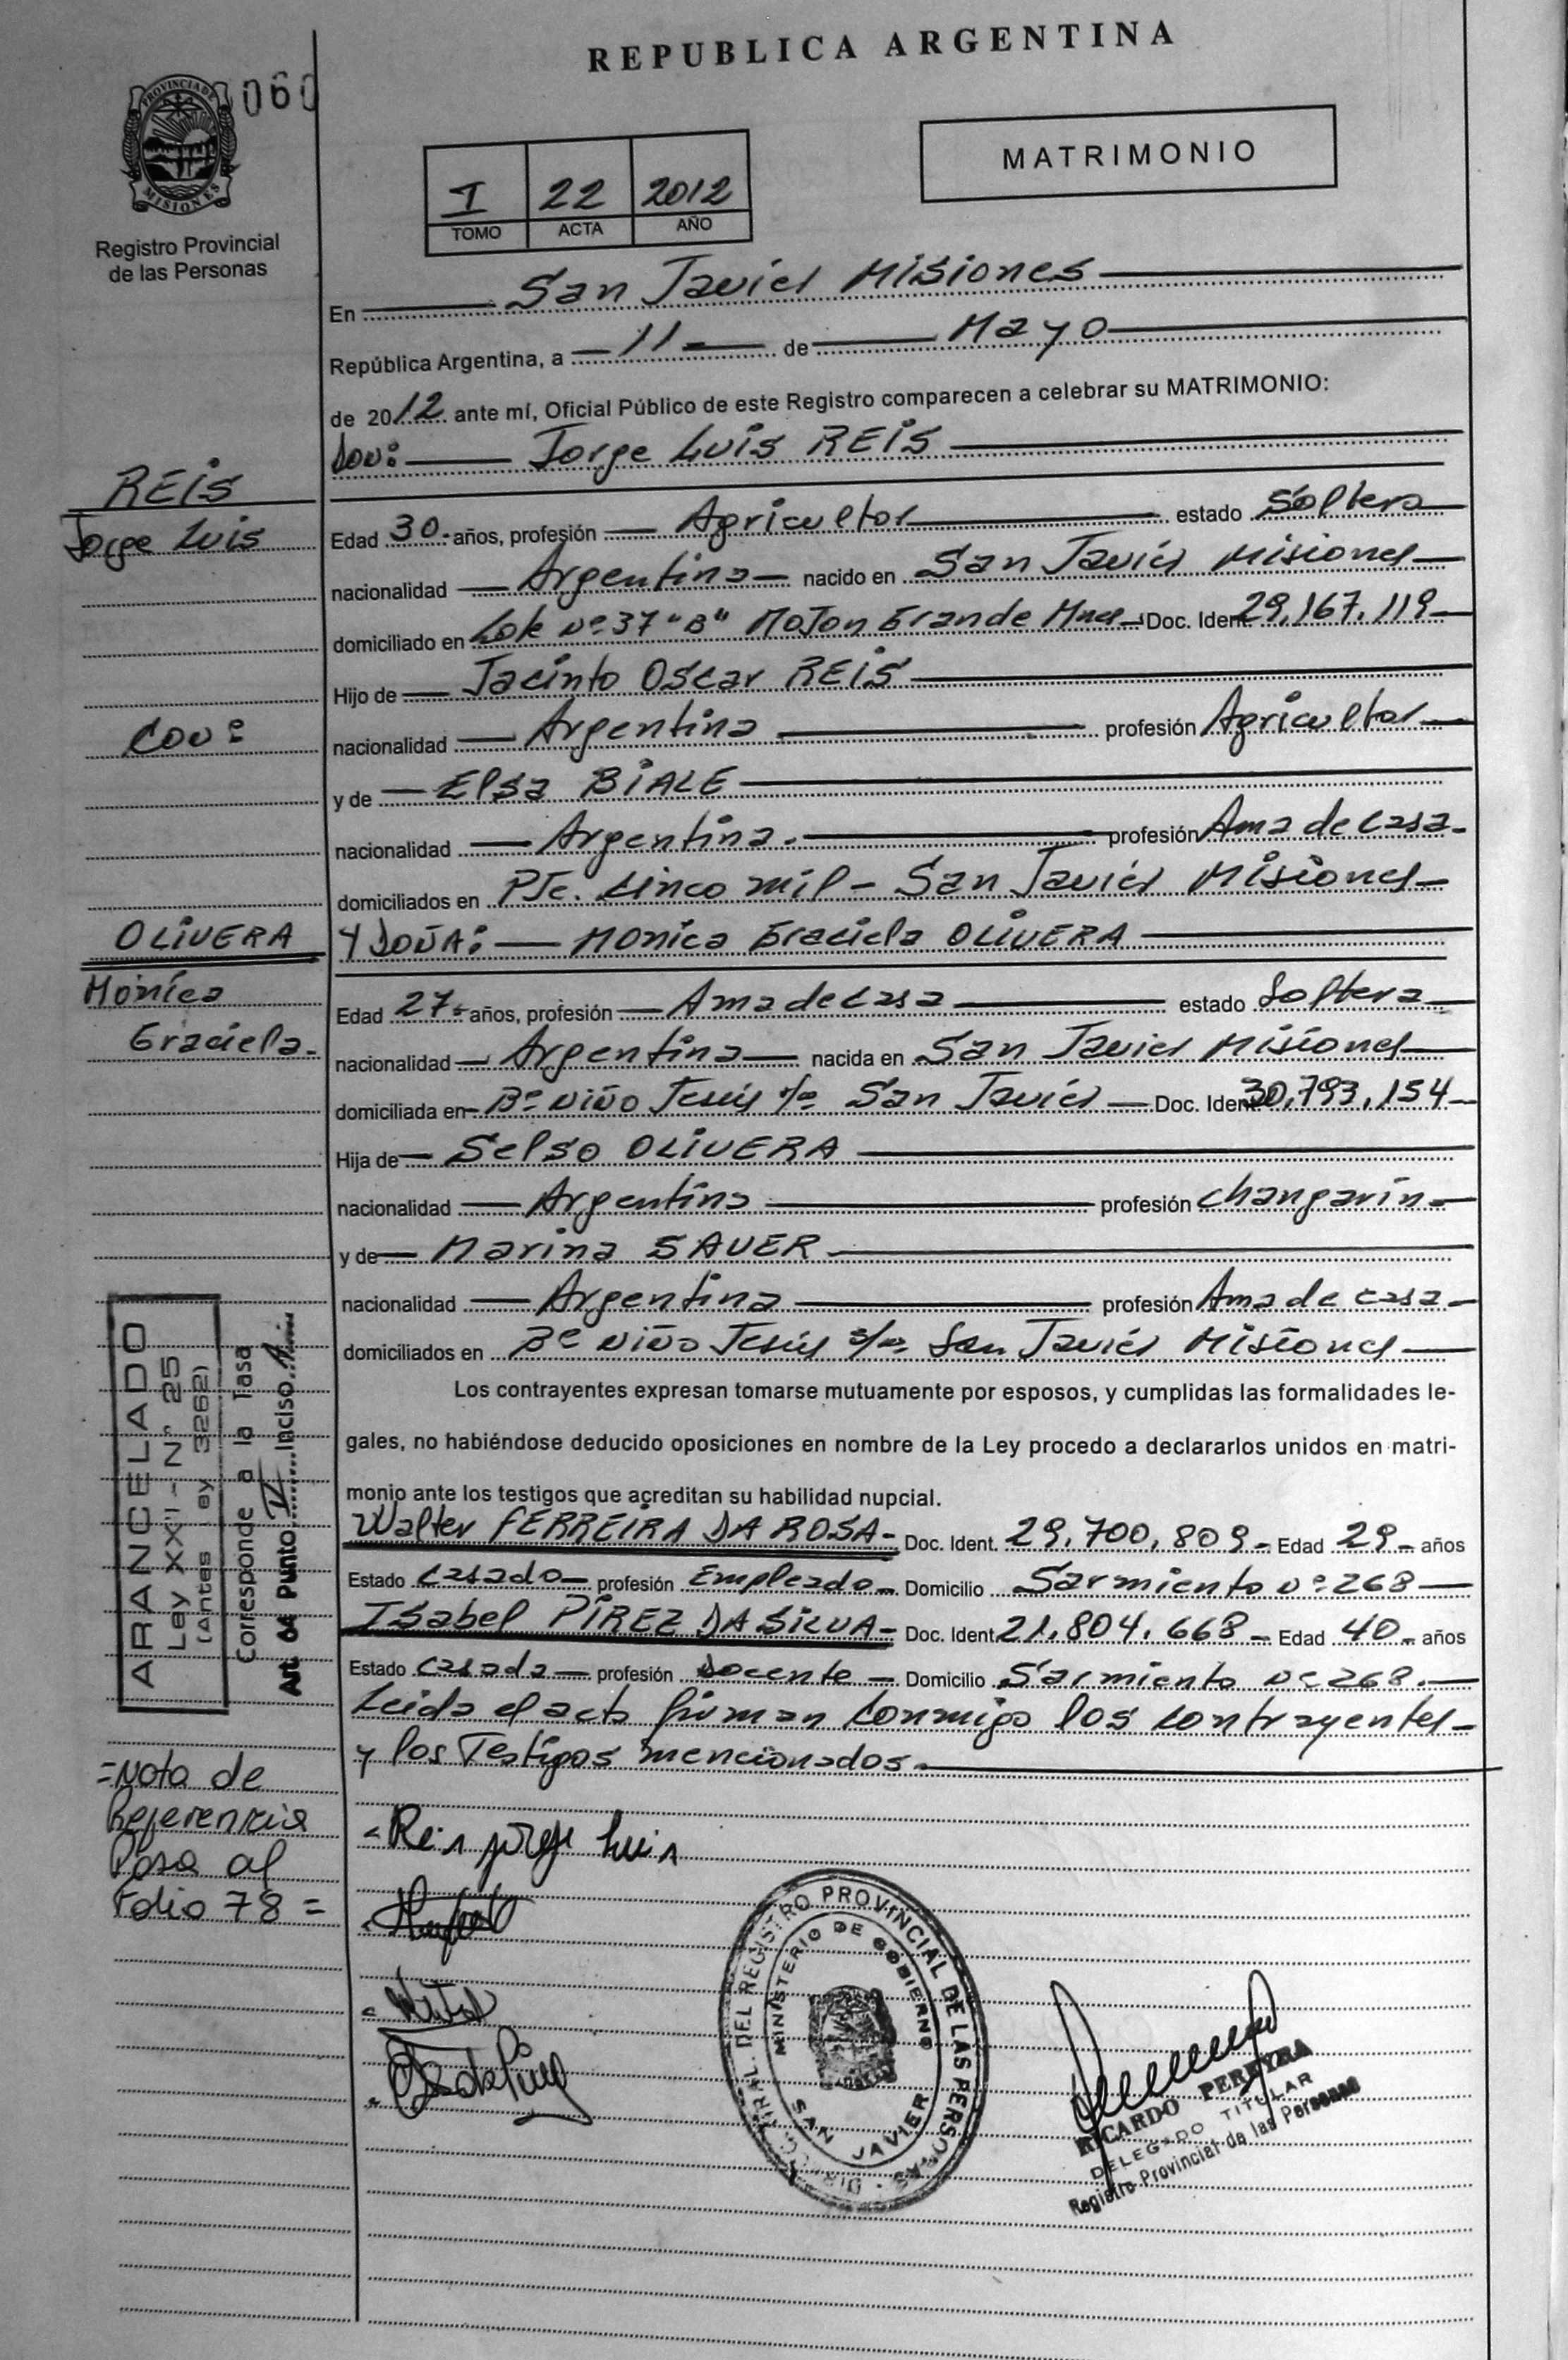 REPUBLICA ARGENTINA
060
PROVINCIA DE MISIONES
Registro Provincial
de las Personas
MATRIMONIO
I 22 2012
TOMO ACTA AÑO
En San Javier Misiones
República Argentina, a 11 de Mayo
de 2012 ante mí, Oficial Público de este Registro comparecen a celebrar su MATRIMONIO:
DON: Jorge Luis REIS
REIS
Jorge Luis
Edad 30 años, profesión Agricultor estado Soltero
nacionalidad Argentina nacido en San Javier Misiones
domiciliado en Lote Nº 37 "B" Mojon Grande Mnes Doc. Ident. 29,167,119
Hijo de Jacinto Oscar REIS
CON:
nacionalidad Argentina profesión Agricultor
y de Elsa BIALE
nacionalidad Argentina. profesión Ama de casa.
domiciliados en Pje. Cinco mil - San Javier Misiones
OLIVERA
Y DOÑA: Monica Graciela OLIVERA
Mónica
Graciela.
Edad 27 años, profesión Ama de casa estado Soltera
nacionalidad Argentina nacida en San Javier Misiones
domiciliada en Bº Niño Jesús s/nº San Javier Doc. Ident. 30,793,154
Hija de Selso OLIVERA
nacionalidad Argentina profesión changarin
y de Marina SAUER
nacionalidad Argentina profesión Ama de casa
domiciliados en Bº Niño Jesús s/nº San Javier Misiones
Los contrayentes expresan tomarse mutuamente por esposos, y cumplidas las formalidades le-
gales, no habiéndose deducido oposiciones en nombre de la Ley procedo a declararlos unidos en matri-
monio ante los testigos que acreditan su habilidad nupcial.
ARANCELADO
Ley XXII - Nº 25
(Antes Ley 3262)
Corresponde a la Tasa
Art. 64 Punto IV Inciso A
Walter FERREIRA DA ROSA Doc. Ident. 29,700,809 Edad 29 años
Estado casado profesión Empleado Domicilio Sarmiento Nº 268
Isabel PIREZ DA SILVA Doc. Ident. 21,804,668 Edad 40 años
Estado casada profesión Docente Domicilio Sarmiento Nº 268.
Leida el acta firman conmigo los contrayentes
y los Testigos mencionados.
=Nota de
Referencia
Pasa al
Folio 78=
Reis jorge luis
DIR. GRAL. DEL REGISTRO PROVINCIAL DE LAS PERSONAS
MINISTERIO DE GOBIERNO
SAN JAVIER
RICARDO PEREYRA
DELEGADO TITULAR
Registro Provincial de las Personas